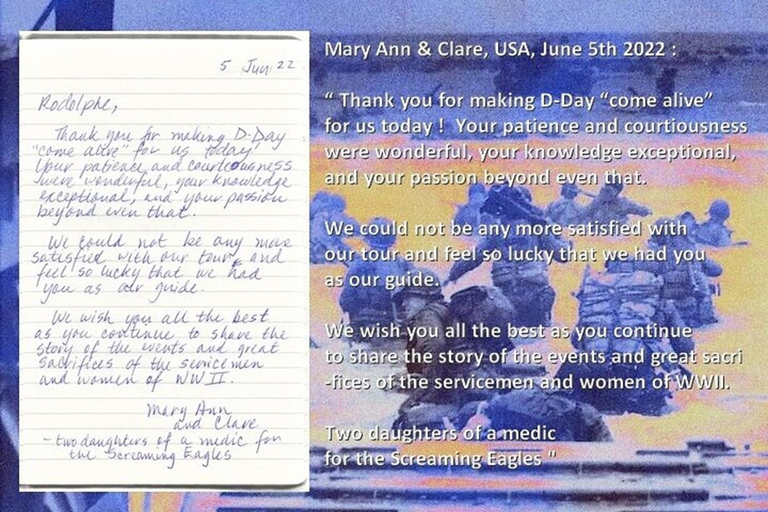 5 Jun 22
Rodolphe,
Thank you for making D-Day
"come alive" for us today!
Your patience and courteousness
were wonderful, your knowledge
exceptional, and your passion
beyond even that.
We could not be any more
satisfied with our tour, and
feel so lucky that we had
you as our guide.
We wish you all the best
as you continue to share the
story of the events and great
sacrifices of the servicemen
and women of WWII.
Mary Ann
and Clare
- two daughters of a medic for
the Screaming Eagles
Mary Ann & Clare, USA, June 5th 2022 :
“ Thank you for making D-Day “come alive”
for us today ! Your patience and courtiousness
were wonderful, your knowledge exceptional,
and your passion beyond even that.
We could not be any more satisfied with
our tour and feel so lucky that we had you
as our guide.
We wish you all the best as you continue
to share the story of the events and great sacri
-fices of the servicemen and women of WWII.
Two daughters of a medic
for the Screaming Eagles "